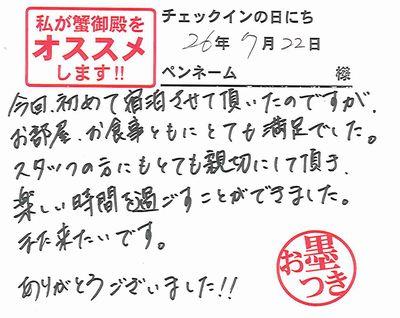 私が蟹御殿を
オススメ
します!!
チェックインの日にち
26年7月22日
ペンネーム 様
今回、初めて宿泊させて頂いたのですが、
お部屋、お食事ともにとても満足でした。
スタッフの方にもとても親切にして頂き、
楽しい時間を過ごすことができました。
また来たいです。
ありがとうございました!!
お墨つき